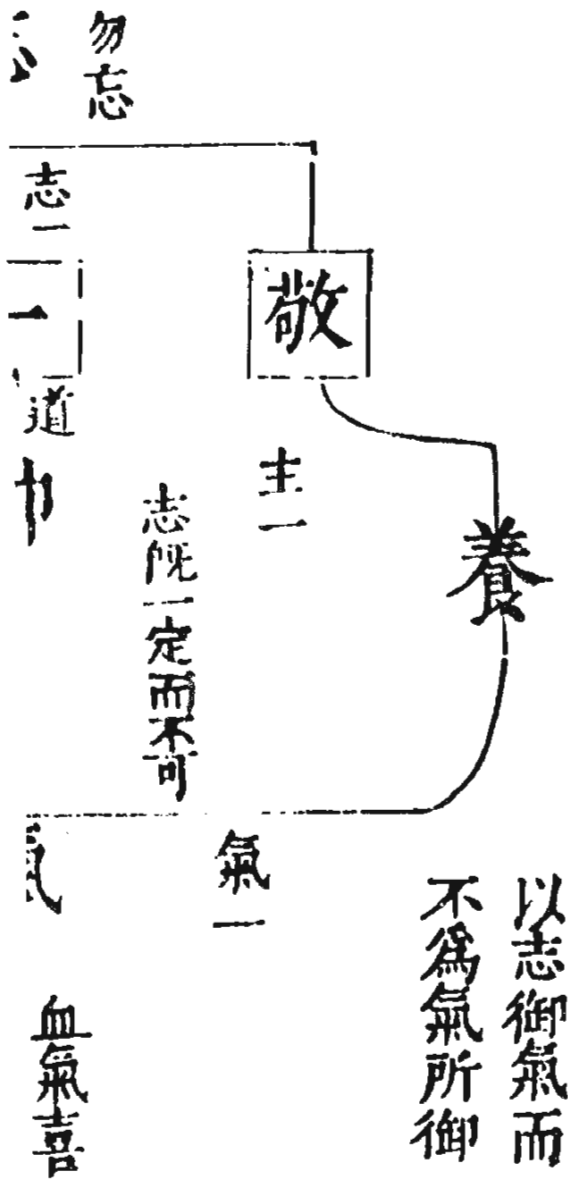 以志御氣而
不爲氣所御
養
敬
主一
氣一
志既一定而不可
勿忘
志一
一
道
血氣喜